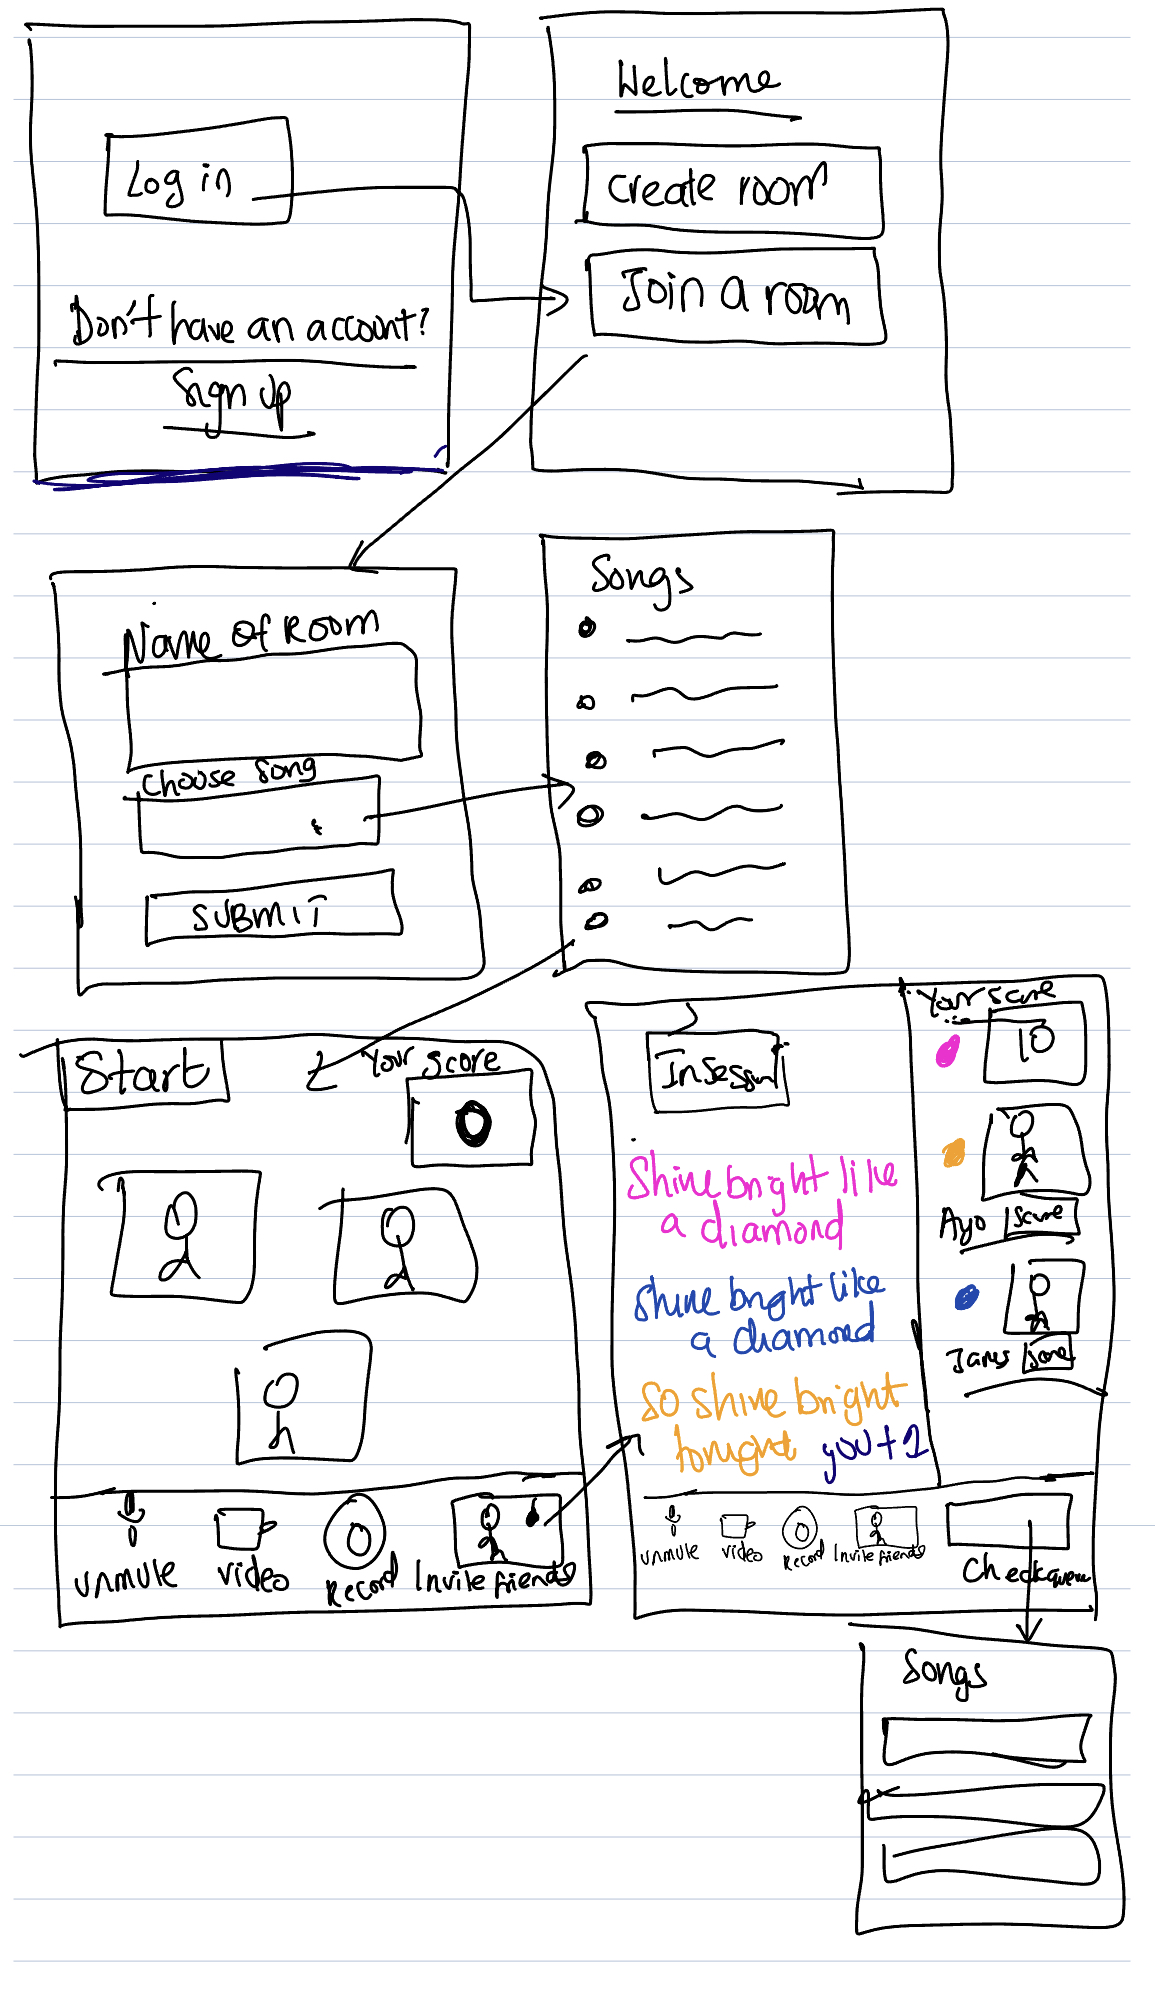 Log in
Don't have an account?
Sign up
Welcome
Create room
Join a room
Name of Room
Choose song
SUBMIT
Songs
Start
Your score
0
Unmute
Video
Record
Invite friends
Insession
Your score
10
Shine bright like
a diamond
Shine bright like
a diamond
So shine bright
tonight you+1
Ayo score
James score
Unmute
Video
Record
Invite friends
Check queue
Songs